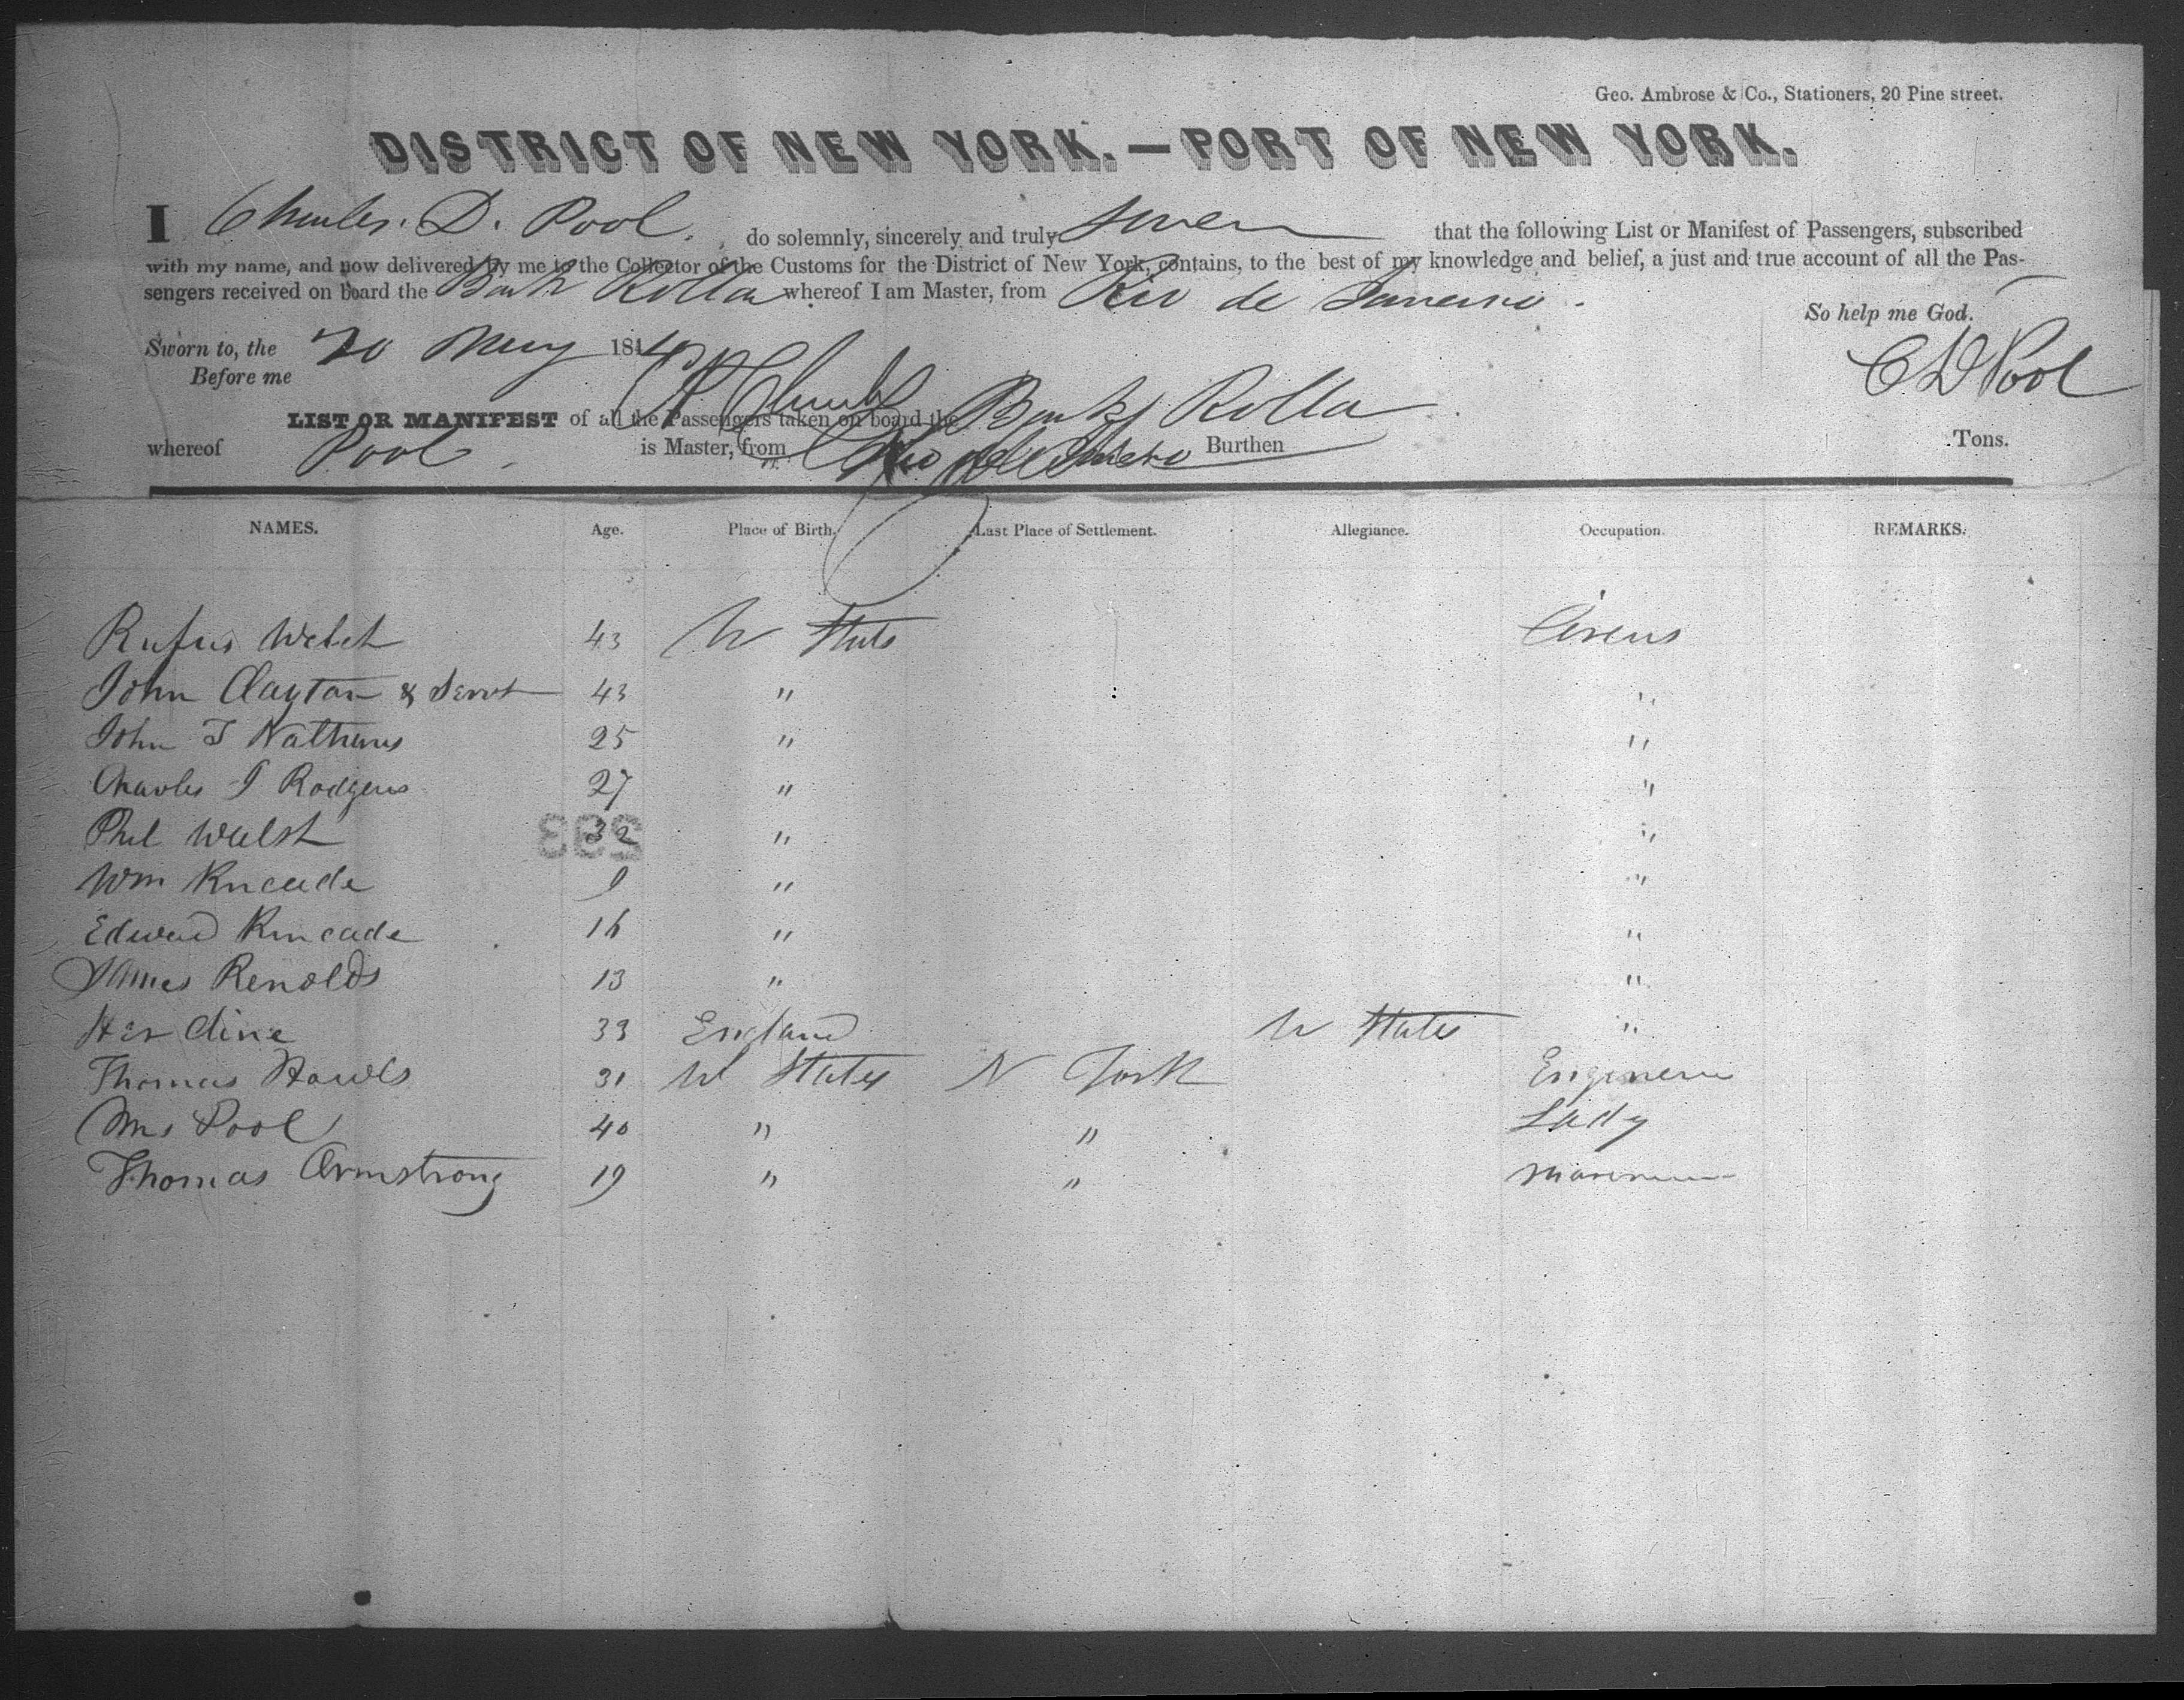 Geo. Ambrose & Co., Stationers, 20 Pine street.
DISTRICT OF NEW YORK.—PORT OF NEW YORK.
I Charles. D. Pool. do solemnly, sincerely and truly swear that the following List or Manifest of Passengers, subscribed
with my name, and now delivered by me to the Collector of the Customs for the District of New York, contains, to the best of my knowledge and belief, a just and true account of all the Pas-
sengers received on board the Bark Rolla whereof I am Master, from Rio de Janeiro.
So help me God.
Sworn to, the 20 May 184
Before me
C D Pool
LIST OR MANIFEST of all the Passengers taken on board the Bark Rolla
whereof Pool is Master, from Rio de Janeiro Burthen Tons.
NAMES. Age. Place of Birth. Last Place of Settlement. Allegiance. Occupation. REMARKS.
Rufus Welch 43 U States Circus
John Clayton & Servt 43 " "
John J Nathans 25 " "
Charles J Rodgers 27 " "
Phil Walsh 32 " "
Wm Kincade 9 " "
Edward Kincade 16 " "
James Renolds 13 " "
Her Cline 33 England U States "
Thomas 31 U States N York Engineer
Mrs Pool 40 " " Lady
Thomas Armstrong 19 " " Mariner